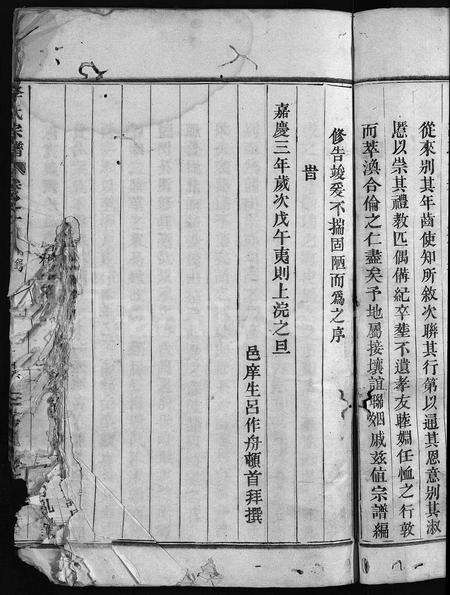 從來別其年齒使知所敘次聯其行第以通其恩意別其淑
慝以崇其禮教匹偶偹紀卒塟不遺孝友睦婣任恤之行敦
而萃渙合倫之仁盡矣予地屬接壤誼聯姻戚兹值宗譜編
修告竣爰不揣固陋而爲之序
旹
嘉慶三年歲次戊午夷則上浣之旦
邑庠生呂作舟頓首拜撰
氏宗譜